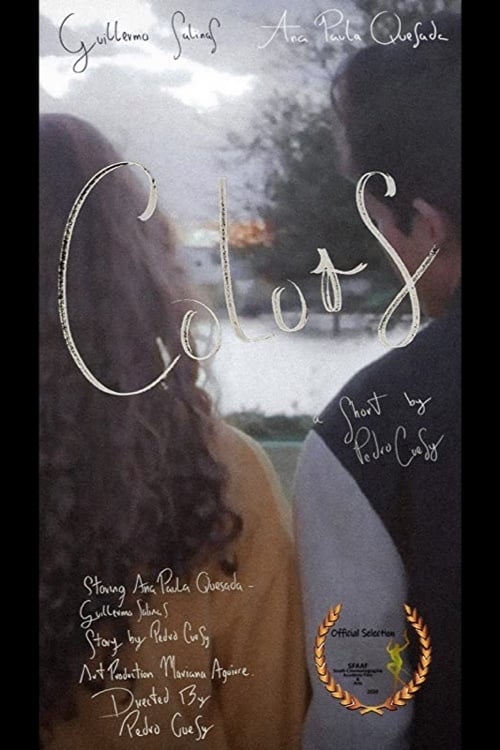 Guillermo Salinas Ana Paula Quesada
Colors
a short by
Pedro Cuesy
Starring Ana Paula Quesada -
Guillermo Salinas
Story by Pedro Cuesy
Art Production Mariana Aguirre.
Directed By
Pedro Cuesy
Official Selection
SFAAF
South Cinematographic
Academy Film
&
Arts
2020